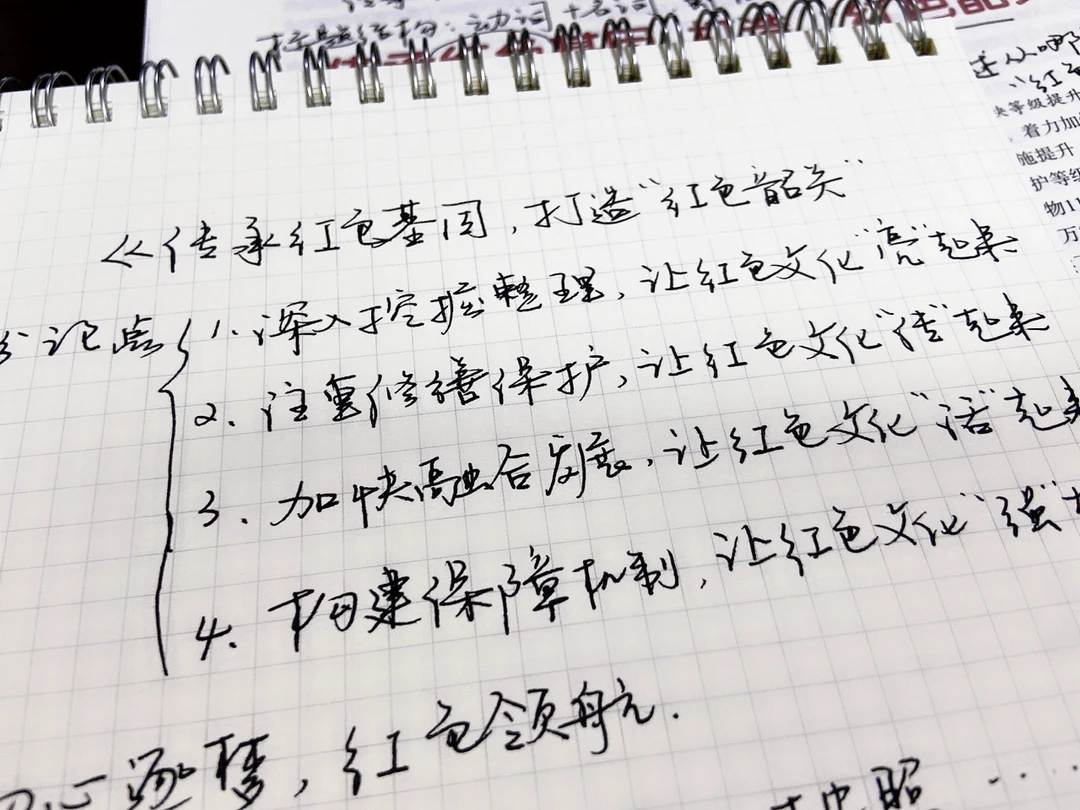 标题结构：动词+名词
《传承红色基因，打造“红色韶关”
分论点
1. 深入挖掘整理，让红色文化“亮”起来
2. 注重修缮保护，让红色文化“传”起来
3. 加快融合发展，让红色文化“活”起来
4. 构建保障机制，让红色文化“强”
心逐梦，红色领航.
等级提升
，着力加
施提升
护等级
物11
万